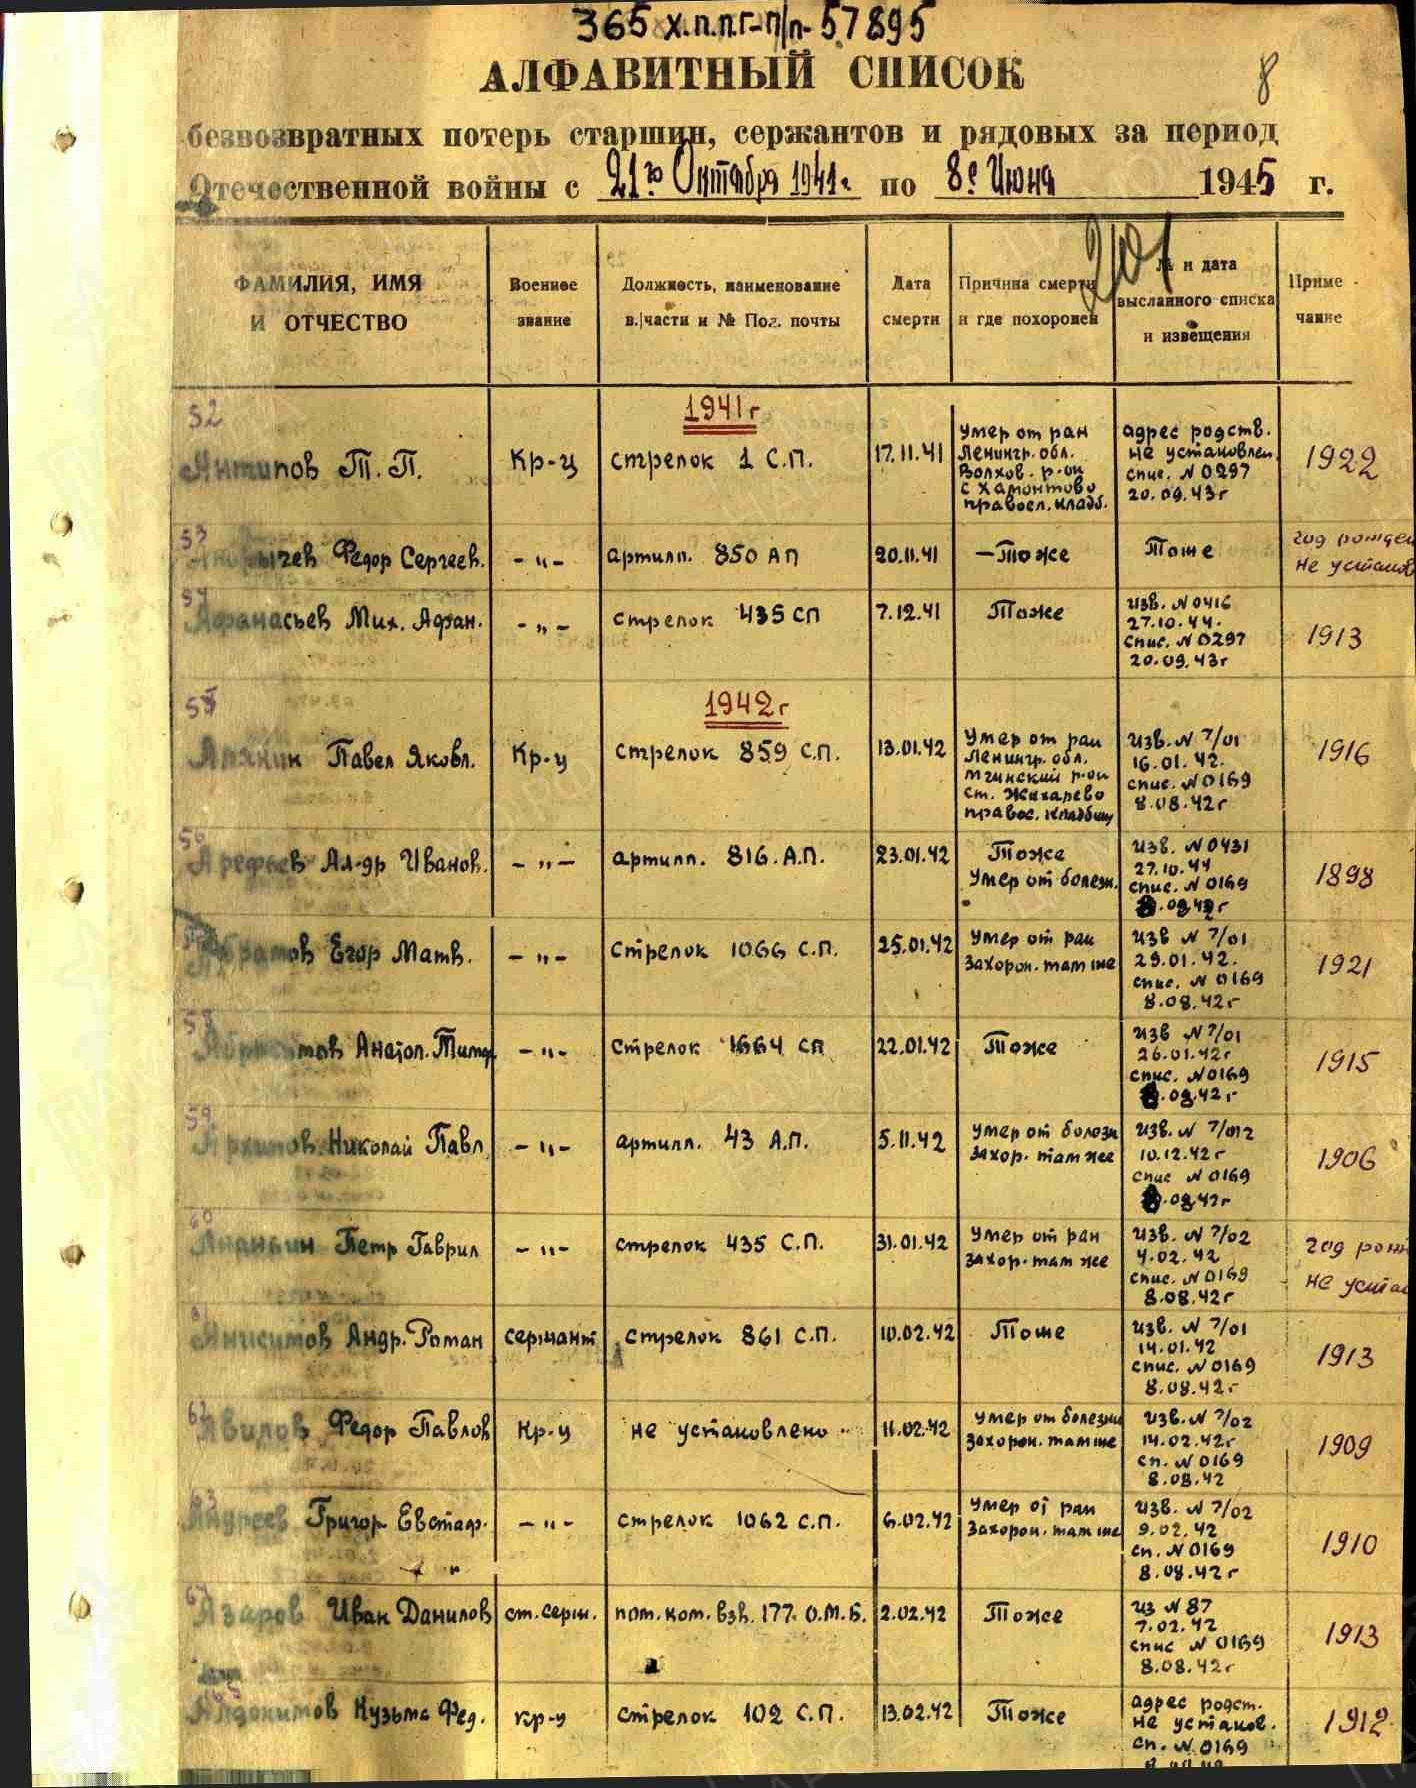 365 х.п.п.г-п/п-57895
АЛФАВИТНЫЙ СПИСОК
8
безвозвратных потерь старшин, сержантов и рядовых за период
Отечественной войны с 21го Октября 1941г. по 8е Июня 1945 г.
201
ФАМИЛИЯ, ИМЯ И ОТЧЕСТВО
Военное звание
Должность, наименование в/части и № Пол. почты
Дата смерти
Причина смерти и где похоронен
№ и дата высланного списка и извещения
Приме чание
1941г
52
Антипов Т. П. Кр-ц стрелок 1 С.П. 17.11.41
умер от ран
Ленингр. обл.
Волхов. р-он
с Хамонтово
правосл. кладб.
адрес родств.
не установлен
спис. N 0297
20.09.43г
1922
53
Федор Сергеев. -"- артилл. 850 АП 20.11.41 -Тоже Тоже
год рожден
не установ
54
Афанасьев Мих. Афан. -"- стрелок 435 СП 7.12.41 Тоже
изв. N 0416
27.10.44.
спис. N 0297
20.09.43г
1913
1942г
55
Павел Яковл. Кр-ц стрелок 859 С.П. 13.01.42
умер от ран
Ленингр. обл.
мгинский р-он
ст. Жихарево
правос. кладбищ
изв. N 7/01
16.01.42.
спис. N 0169
8.08.42г
1916
56
Арефьев Ал-др Иванов. -"- артилл. 816. А.П. 23.01.42
Тоже
умер от болезн.
изв. N 0431
27.10.44
спис. N 0169
8.08.42г
1898
Егор Матв. -"- стрелок 1066 С.П. 25.01.42
умер от ран
захорон. там ше
изв N 7/01
29.01.42.
спис. N 0169
8.08.42г
1921
58
Анатол. Тимоф -"- стрелок 1664 СП 22.01.42 Тоже
изв N 7/01
26.01.42г
спис. N 0169
8.08.42г
1915
59
Архипов Николай Павл -"- артилл. 43 А.П. 5.11.42
умер от болезн
захор. там же
изв. N 7/012
10.12.42г
спис N 0169
8.08.42г
1906
60
Ананьин Петр Гаврил -"- стрелок 435 С.П. 31.01.42
умер от ран
захор. там же
изв. N 7/02
4.02.42
спис. N 0169
8.08.42г
год рож
не уста
Анисимов Андр. Роман сержант стрелок 861 С.П. 10.02.42 Тоше
изв. N 7/01
14.01.42
спис. N 0169
8.08.42г
1913
62
Авилов Федор Павлов Кр-ц не установлено 11.02.42
умер от болезни
захорон. там ше
изв. N 7/02
14.02.42г
сп. N 0169
8.08.42
1909
63
Андреев Григор Евстаф. -"- стрелок 1062 С.П. 6.02.42
умер от ран
захорон. там ше
изв. N 7/02
9.02.42
сп. N 0169
8.08.42г
1910
64
Азаров Иван Данилов ст. серж. пом. ком. взв. 177. О.М.Б. 2.02.42 Тоже
из N 87
7.02.42
спис N 0169
8.08.42г
1913
Кузьма Фед. кр-ц стрелок 102 С.П. 13.02.42 Тоже
адрес родст.
не установ.
сп. N 0169
1912